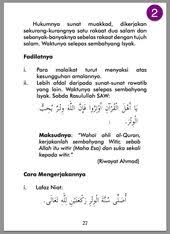 2
Hukumnya sunat muakkad, dikerjakan
sekurang-kurangnya satu rakaat dua salam dan
sebanyak-banyaknya sebelas rakaat dengan tujuh
salam. Waktunya selepas sembahyang Isyak.
Fadilatnya
i. Para malaikat turut menyaksi atas
kesungguhan amalannya.
ii. Lebih afdal daripada sunat-sunat rawatib
yang lain. Waktunya selepas sembahyang
Isyak. Sabda Rasulullah SAW:
يَا أَهْلَ الْقُرْآنِ أَوْتِرُوا فَإِنَّ اللَّهَ وِتْرٌ يُحِبُّ
الْوِتْرَ.
Maksudnya: "Wahai ahli al-Quran,
kerjakanlah sembahyang Witir, sebab
Allah itu witir (Maha Esa) dan suka sekali
kepada witir."
(Riwayat Ahmad)
Cara Mengerjakannya
i. Lafaz Niat:
أُصَلِّى سُنَّةَ الْوِتْرِ رَكْعَتَيْنِ لِلَّهِ تَعَالَى.
22